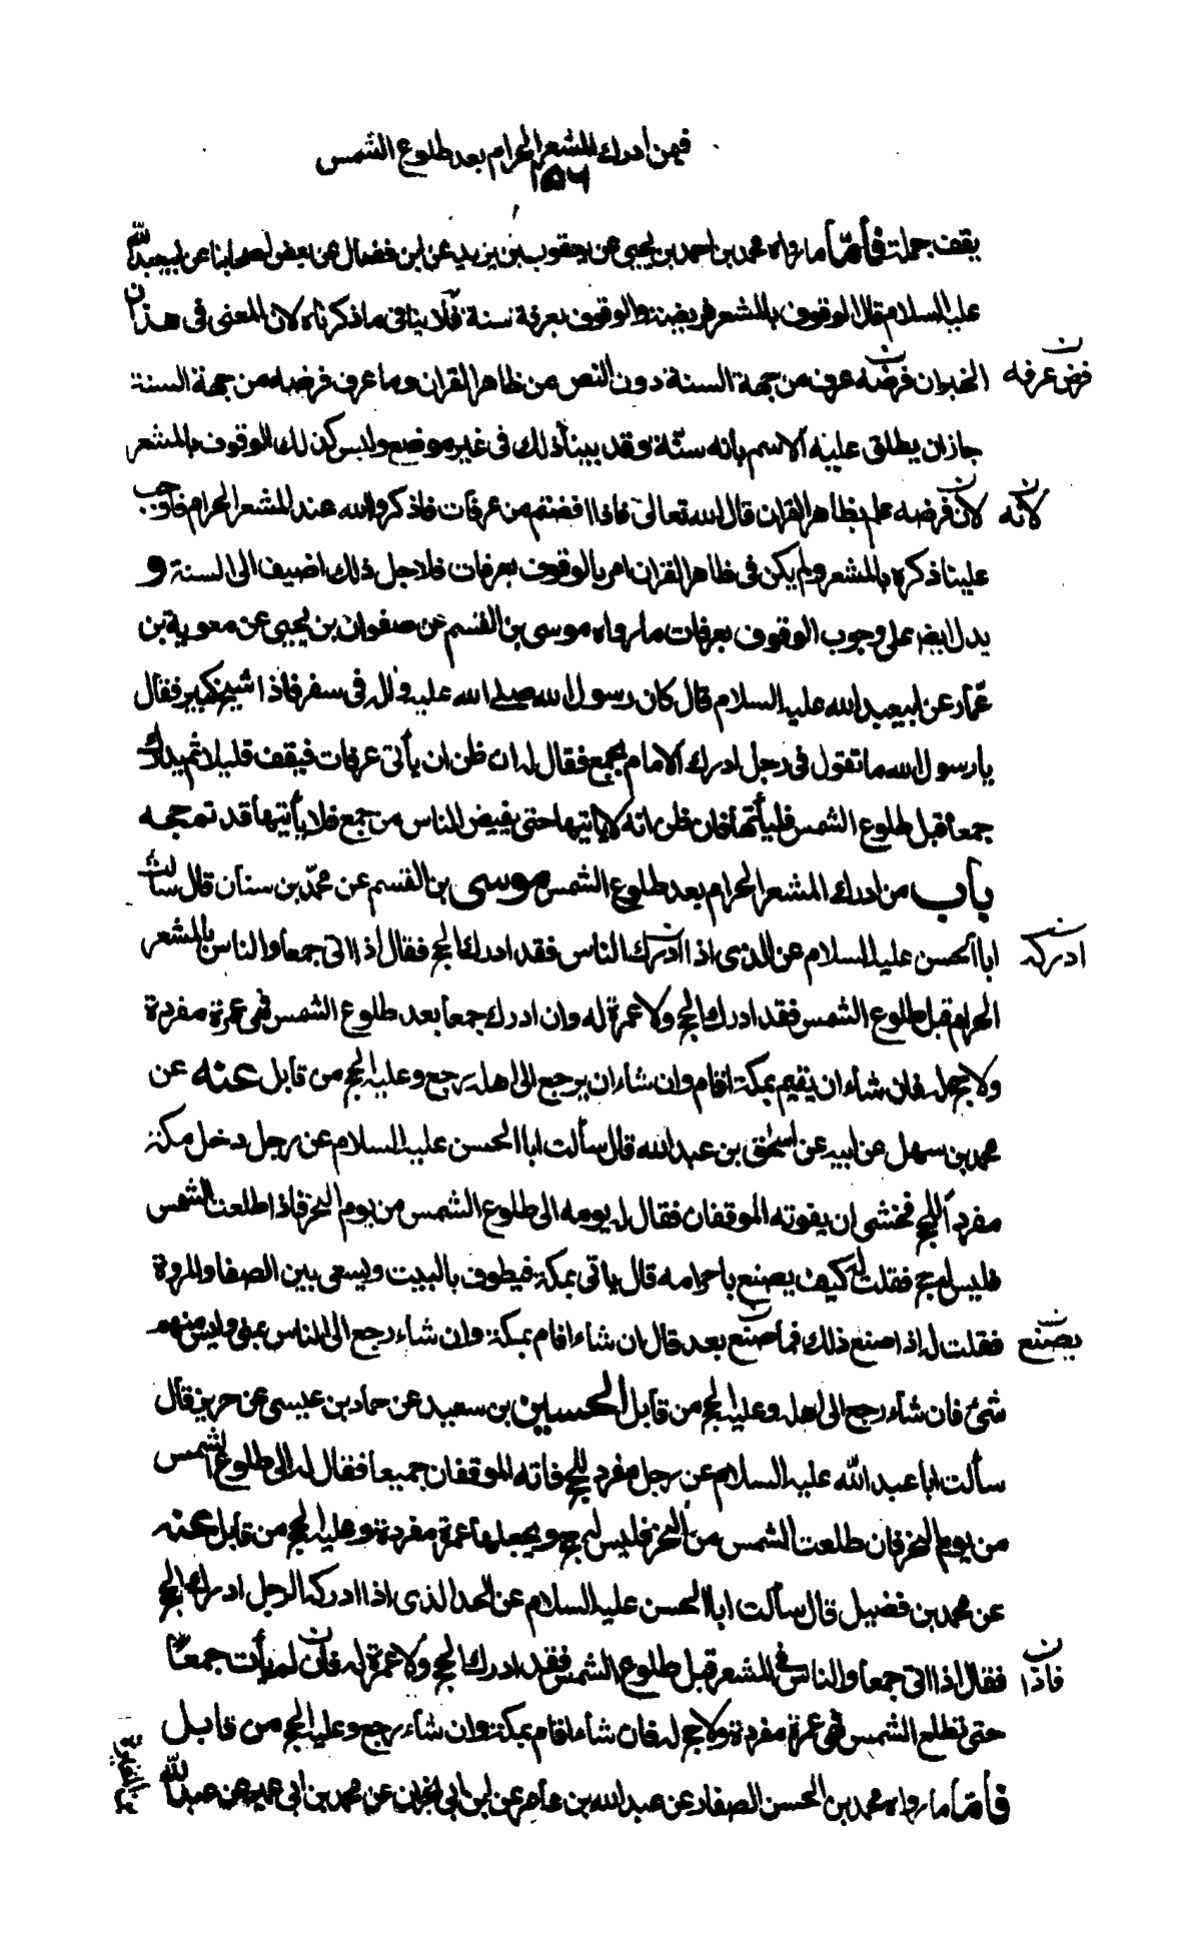 فيمن ادرك المشعر الحرام بعد طلوع الشمس
١٥٦
يقف جملة فأمّا ما رواه محمد بن احمد بن يحيى عن يعقوب بن يزيد عن ابن فضال عن بعض اصحابنا عن ابيعبد الله
عليه السلام قال الوقوف بالمشعر فريضة والوقوف بعرفة سنة فلا ينافى ما ذكرناه لان المعنى فى هذا
الخبر ان فرضه عرف من جهة السنة دون النص من ظاهر القران وما عرف فرضه من جهة السنة
فرض عرفه ن
جاز ان يطلق عليه الاسم بانه سنّة وقد بينا ذلك فى غير موضع وليس كذلك الوقوف بالمشعر
لان فرضه علم بظاهر القران قال الله تعالى فاذا افضتم من عرفات فاذكروا الله عند المشعر الحرام فاوجب
لانّه ن
علينا ذكره بالمشعر ولم يكن فى ظاهر القران امر بالوقوف بعرفات فلاجل ذلك اضيف الى السنة و
يدل ايضا على وجوب الوقوف بعرفات ما رواه موسى بن القسم عن صفوان بن يحيى عن معوية بن
عمّار عن ابيعبد الله عليه السلام قال كان رسول الله صلى الله عليه واله فى سفر فاذا شيخ كبير فقال
يا رسول الله ما تقول فى رجل ادرك الامام بجمع فقال له ان ظن ان يأتى عرفات فيقف قليلا ثم يدرك
جمعا قبل طلوع الشمس فليأتها فان ظن انه لا ياتيها حتى يفيض الناس من جمع فلا يأتيها قد تم حجه
باب من ادرك المشعر الحرام بعد طلوع الشمس موسى بن القسم عن محمّد بن سنان قال سالت
ابا الحسن عليه السلام عن الذى اذا ادرك الناس فقد ادرك الحج فقال اذا اتى جمعا والناس بالمشعر
ادركه ن
الحرام قبل طلوع الشمس فقد ادرك الحج ولا عمرة له وان ادرك جمعا بعد طلوع الشمس فهى عمرة مفردة
ولا حج له فان شاء ان يقيم بمكة اقام وان شاء ان يرجع الى اهله رجع وعليه الحج من قابل عنه عن
محمد بن سهل عن ابيه عن اسحق بن عبد الله قال سألت ابا الحسن عليه السلام عن رجل دخل مكة
مفردا للحج فخشى ان يفوته الموقفان فقال له يومه الى طلوع الشمس من يوم النحر فاذا طلعت الشمس
فليس له حج فقلت له كيف يصنع باحرامه قال ياتى بمكة فيطوف بالبيت ويسعى بين الصفا والمروة
فقلت له اذا صنع ذلك فما صنع بعد قال ان شاء اقام بمكة وان شاء رجع الى الناس بمنى وليس منهم
يصنع ن
شئ فان شاء رجع الى اهله وعليه الحج من قابل الحسين بن سعيد عن حماد بن عيسى عن حريز قال
سألت ابا عبد الله عليه السلام عن رجل مفرد للحج فاته الموقفان جميعا فقال له الى طلوع الشمس
من يوم النحر فان طلعت الشمس من النحر فليس له حج ويجعلها عمرة مفردة وعليه الحج من قابل عنه
عن محمد بن فضيل قال سألت ابا الحسن عليه السلام عن الحد الذى اذا ادركه الرجل ادرك الحج
فقال اذا اتى جمعا والناس فى المشعر قبل طلوع الشمس فقد ادرك الحج ولا عمرة له فان لم يأت جمعا
فاذا ن
حتى تطلع الشمس فهى عمرة مفردة ولا حج له فان شاء اقام بمكة وان شاء رجع وعليه الحج من قابل
فأمّا ما رواه محمد بن الحسن الصفار عن عبد الله بن عامر عن ابن ابى نجران عن محمد بن ابى عمير عن عبد الله